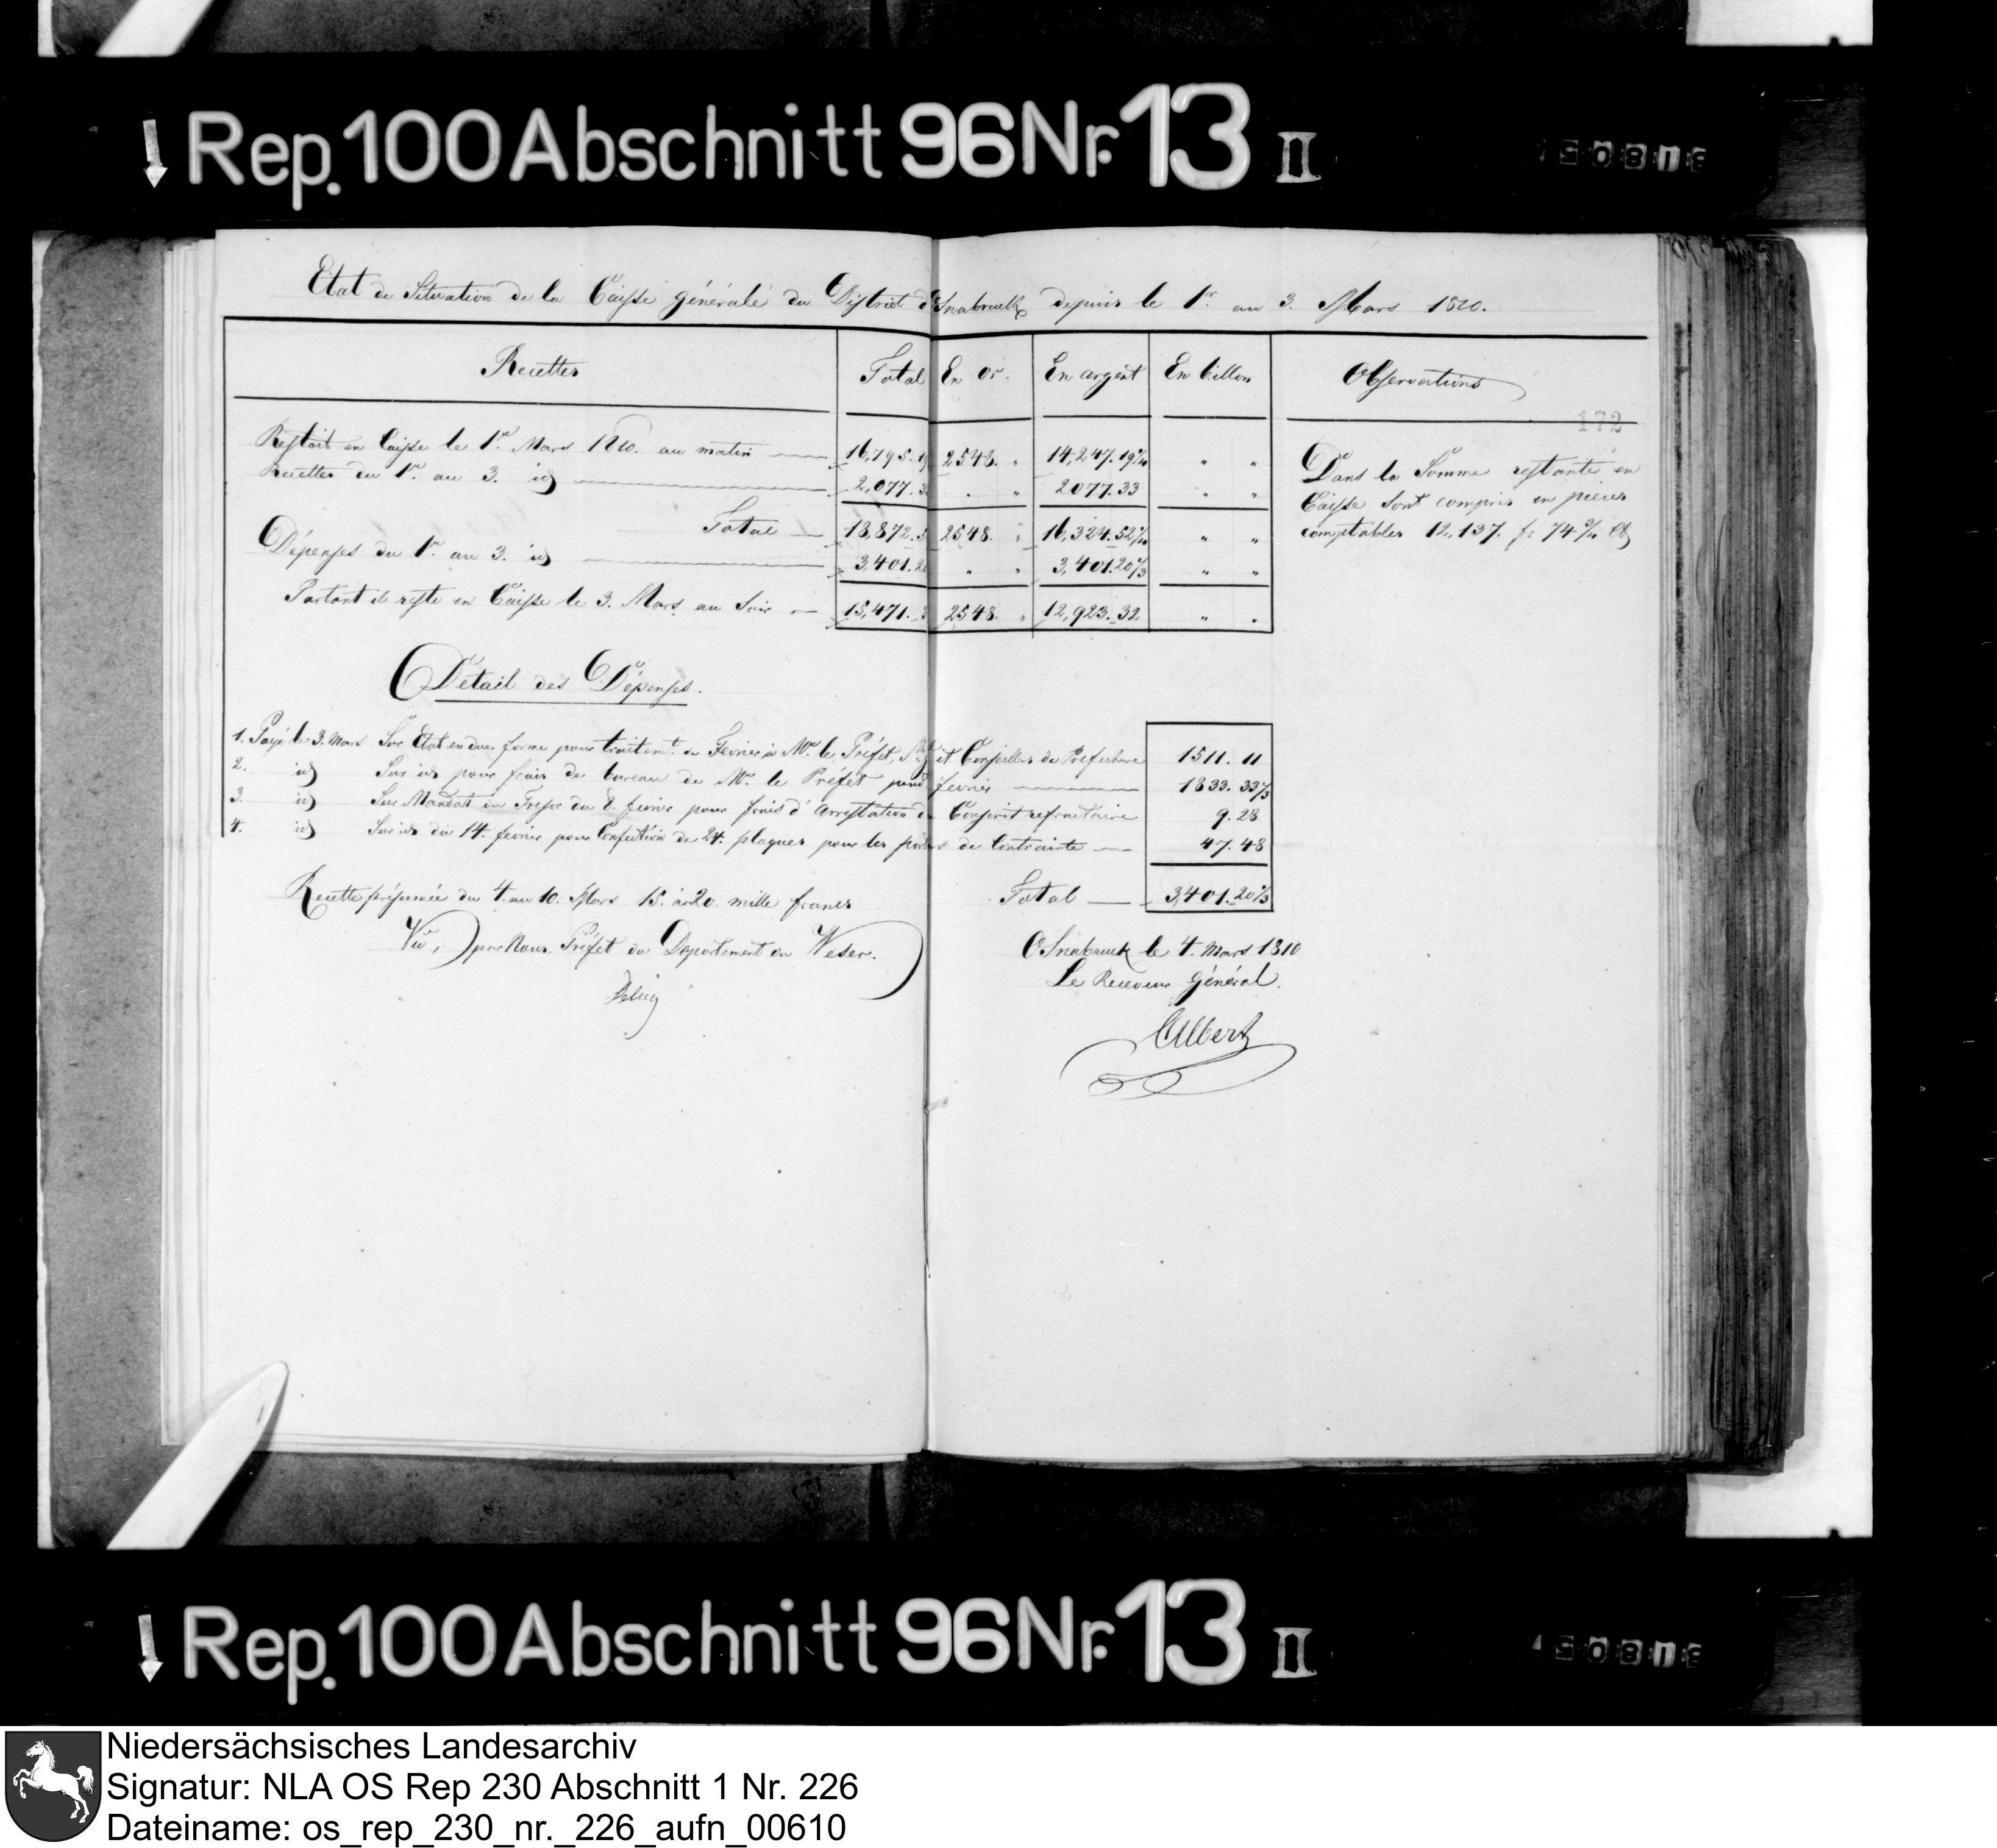 Rep. 100 Abschnitt 96 Nr. 13 II
Etat de Situation de la Caisse générale du District d'Osnabruck depuis le 1r. au 3. Mars 1810.
Recettes Total En or. En argent En billon Observations
172
Restoit en Caisse le 1r. Mars 1810. au matin 16,795. 19 2548. " 14,247. 19 " "
Recettes du 1r. au 3. id 2,077. 3 . " 2077. 33 " "
Total 18,872. 5 2548. " 16,324. 52 " "
Dépenses du 1r. au 3. id 3,401. 20 " " 3,401. 20 1/3 " "
Partant il reste en Caisse le 3. Mars au Soir 15,471. 3 2548. " 12,923. 32 " "
Dans la Somme restante en
Caisse sont compris en pièces
comptables 12,137. f: 74
Détail des Dépenses.
1. Payé le 3. Mars Sur Etat en due forme pour traitemt. de Fevrier à Mr. le Préfet, et Conseillers de Préfecture 1511. 11
2. id Sur id pour frais de bureau de Mr. le Préfet pend fevrier 1833. 33 1/3
3. id Sur Mandat du Tresor du 8. fevrier pour frais d'Arrestation du Conscrit refractaire 9. 28
4. id Sur id du 14. fevrier pour Confection de 24. plaques pour les porteurs de Contrainte 47. 48
Total 3,401. 20 1/3
Recette présumée du 4. au 10. Mars 15. à 20. mille francs
Vu, par Nous Préfet du Département du Weser.
Osnabruck le 4. Mars 1810
Le Receveur général.
Albert
Rep. 100 Abschnitt 96 Nr. 13 II
Niedersächsisches Landesarchiv
Signatur: NLA OS Rep 230 Abschnitt 1 Nr. 226
Dateiname: os_rep_230_nr._226_aufn_00610